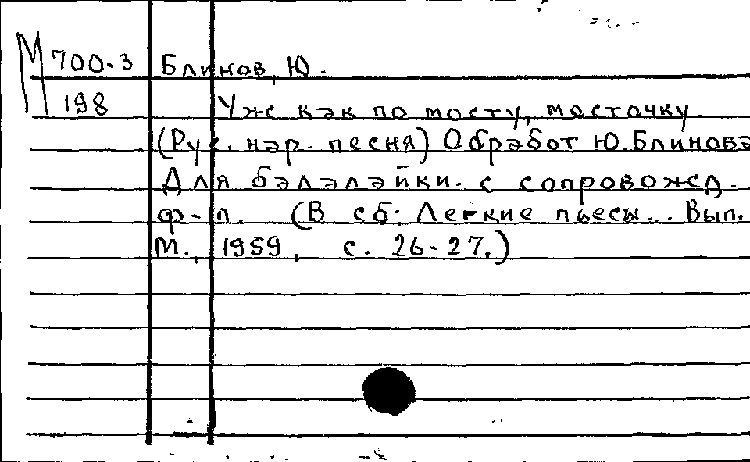 М 700-3 Блинов, Ю.
198 Уже как по мосту, мосточку
(Рус. нар. песня) Обработ Ю. Блинова
Для балалайки с сопровожд.
ф-п. (В сб: Легкие пьесы... Вып.
М., 1959, с. 26-27.)